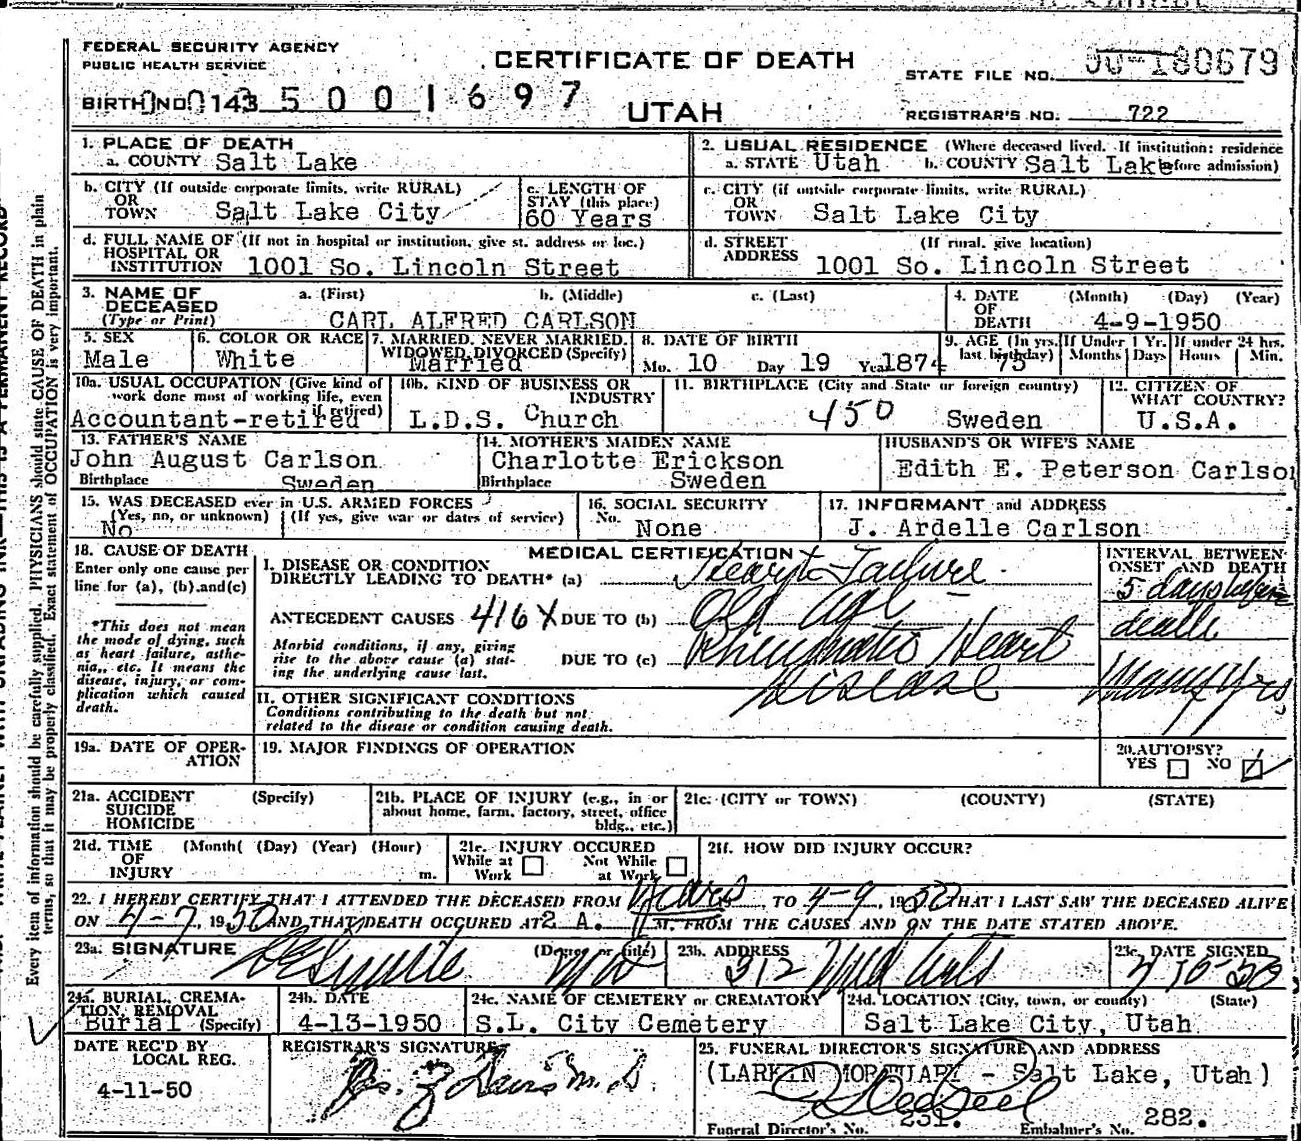 FEDERAL SECURITY AGENCY
PUBLIC HEALTH SERVICE
CERTIFICATE OF DEATH
UTAH
STATE FILE NO. 180679
BIRTH NO. 143 5001697
REGISTRAR'S NO. 722
1. PLACE OF DEATH
a. COUNTY Salt Lake
2. USUAL RESIDENCE (Where deceased lived. If institution: residence before admission)
a. STATE Utah b. COUNTY Salt Lake
b. CITY (If outside corporate limits, write RURAL)
OR
TOWN Salt Lake City
c. LENGTH OF
STAY (this place)
60 Years
c. CITY (if outside corporate limits, write RURAL)
OR
TOWN Salt Lake City
d. FULL NAME OF (If not in hospital or institution, give st. address or loc.)
HOSPITAL OR
INSTITUTION 1001 So. Lincoln Street
d. STREET (If rural, give location)
ADDRESS 1001 So. Lincoln Street
3. NAME OF a. (First) b. (Middle) c. (Last)
DECEASED
(Type or Print) CARL ALFRED CARLSON
4. DATE (Month) (Day) (Year)
OF
DEATH 4-9-1950
5. SEX
Male
6. COLOR OR RACE
White
7. MARRIED, NEVER MARRIED,
WIDOWED, DIVORCED (Specify)
Married
8. DATE OF BIRTH
Mo. 10 Day 19 Year 1874
9. AGE (In yrs. last birthday) 75
If Under 1 Yr. Months Days
If under 24 hrs. Hours Min.
10a. USUAL OCCUPATION (Give kind of
work done most of working life, even
if retired)
Accountant-retired
10b. KIND OF BUSINESS OR
INDUSTRY
L.D.S. Church
11. BIRTHPLACE (City and State or foreign country)
450 Sweden
12. CITIZEN OF
WHAT COUNTRY?
U.S.A.
13. FATHER'S NAME
John August Carlson
Birthplace Sweden
14. MOTHER'S MAIDEN NAME
Charlotte Erickson
Birthplace Sweden
HUSBAND'S OR WIFE'S NAME
Edith E. Peterson Carlson
15. WAS DECEASED ever in U.S. ARMED FORCES
(Yes, no, or unknown) (If yes, give war or dates of service)
No
16. SOCIAL SECURITY
No. None
17. INFORMANT and ADDRESS
J. Ardelle Carlson
18. CAUSE OF DEATH
Enter only one cause per
line for (a), (b), and (c)
*This does not mean
the mode of dying, such
as heart failure, asthe-
nia, etc. It means the
disease, injury, or com-
plication which caused
death.
MEDICAL CERTIFICATION
I. DISEASE OR CONDITION
DIRECTLY LEADING TO DEATH* (a) Heart Failure
ANTECEDENT CAUSES 416X DUE TO (b) Old Age
Morbid conditions, if any, giving
rise to the above cause (a) stat-
ing the underlying cause last.
DUE TO (c) Rheumatic Heart
Disease
INTERVAL BETWEEN
ONSET AND DEATH
5 days before
death
Many Yrs
II. OTHER SIGNIFICANT CONDITIONS
Conditions contributing to the death but not
related to the disease or condition causing death.
19a. DATE OF OPER-
ATION
19. MAJOR FINDINGS OF OPERATION
20. AUTOPSY?
YES NO
21a. ACCIDENT (Specify)
SUICIDE
HOMICIDE
21b. PLACE OF INJURY (e.g., in or
about home, farm, factory, street, office
bldg., etc.)
21c. (CITY or TOWN) (COUNTY) (STATE)
21d. TIME (Month( (Day) (Year) (Hour)
OF
INJURY m.
21e. INJURY OCCURED
While at Work Not While at Work
21f. HOW DID INJURY OCCUR?
22. I HEREBY CERTIFY THAT I ATTENDED THE DECEASED FROM Years, TO 4-9, 1950 THAT I LAST SAW THE DECEASED ALIVE
ON 4-7, 1950 AND THAT DEATH OCCURED AT 2 A. M. FROM THE CAUSES AND ON THE DATE STATED ABOVE.
23a. SIGNATURE (Degree or title) MD
23b. ADDRESS 312 Med Arts
23c. DATE SIGNED
4 10 50
24a. BURIAL, CREMA-
TION, REMOVAL
Burial (Specify)
24b. DATE
4-13-1950
24c. NAME OF CEMETERY or CREMATORY
S.L. City Cemetery
24d. LOCATION (City, town, or county) (State)
Salt Lake City, Utah
DATE REC'D BY
LOCAL REG.
4-11-50
REGISTRAR'S SIGNATURE
Davis M.D.
25. FUNERAL DIRECTOR'S SIGNATURE AND ADDRESS
(LARKIN MORTUARY - Salt Lake, Utah)
Funeral Director's No. 231. Embalmer's No. 282.
Every item of information should be carefully supplied. PHYSICIANS should state CAUSE OF DEATH in plain
terms, so that it may be properly classified. Exact statement of OCCUPATION is very important.